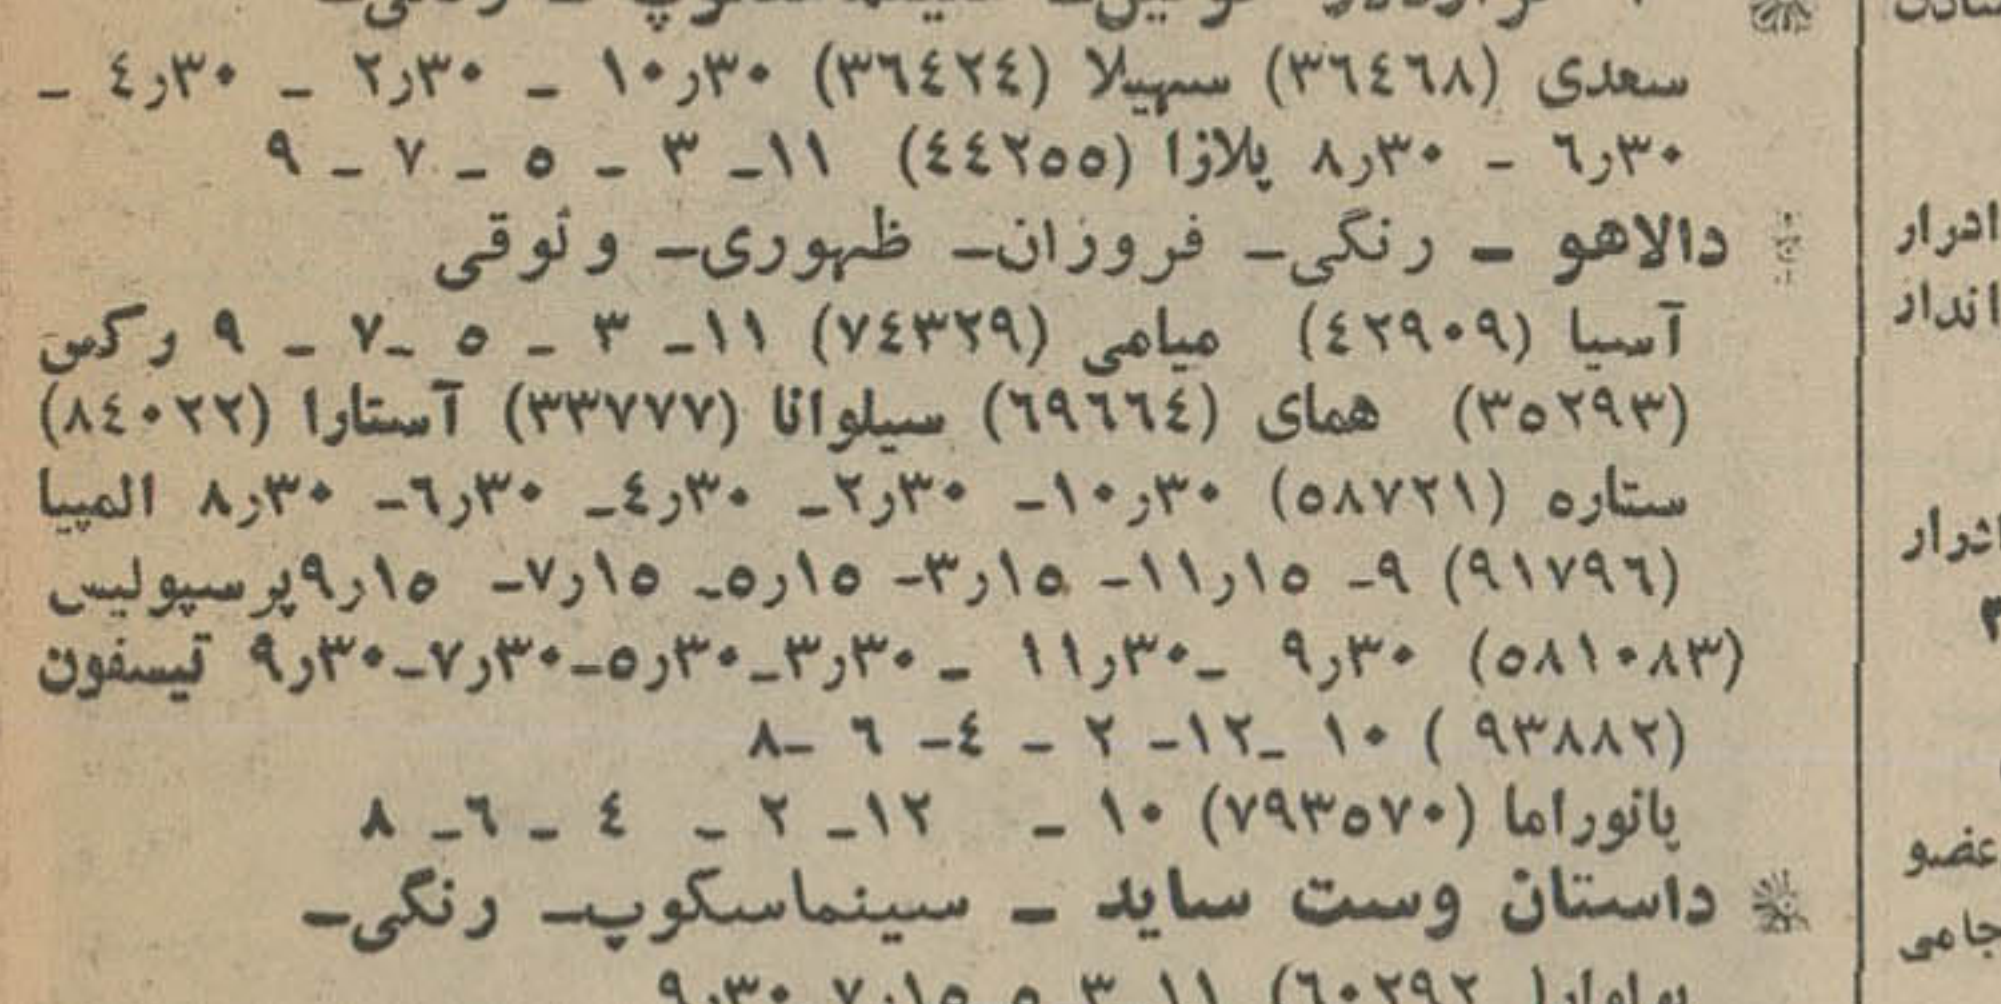 سعدی (۳٦٤٦۸) سهیلا (۳٦٤۲٤) ۳۰ر۱۰ ـ ۳۰ر۲ ـ ۳۰ر٤ ـ
۳۰ر٦ ـ ۳۰ر۸ پلازا (٤٤۲۵۵) ۱۱ـ ۳ ـ ۵ ـ ۷ ـ ۹
دالاهو ـ رنگی ـ فروزان ـ ظهوری ـ وثوقی
آسیا (٤۲۹۰۹) میامی (۷٤۳۲۹) ۱۱ـ ۳ ـ ۵ ـ۷ ـ ۹ رکس
(۳۵۲۹۳) همای (٦۹٦٦٤) سیلوانا (۳۳۷۷۷) آستارا (۸٤۰۲۲)
ستاره (۵۸۷۲۱) ۳۰ر۱۰ـ ۳۰ر۲ـ ۳۰ر٤ـ ۳۰ر٦ـ ۳۰ر۸ المپیا
(۹۱۷۹٦) ۹ـ ۱۵ر۱۱ـ ۱۵ر۳ـ ۱۵ر۵ـ ۱۵ر۷ـ ۱۵ر۹ پرسپولیس
(۵۸۱۰۸۳) ۳۰ر۹ ـ۳۰ر۱۱ ـ ۳۰ر۳ـ۳۰ر۵ـ۳۰ر۷ـ۳۰ر۹ تیسفون
(۹۳۸۸۲ ) ۱۰ ـ۱۲ـ ۲ ـ ٤ـ ٦ ـ۸
پانوراما (۷۹۳۵۷۰) ۱۰ ـ ۱۲ـ ۲ ـ ٤ ـ ٦ـ ۸
داستان وست ساید ـ سینماسکوپ ـ رنگی ـ
ادرار
انداز
ادرار
عضو
جامی